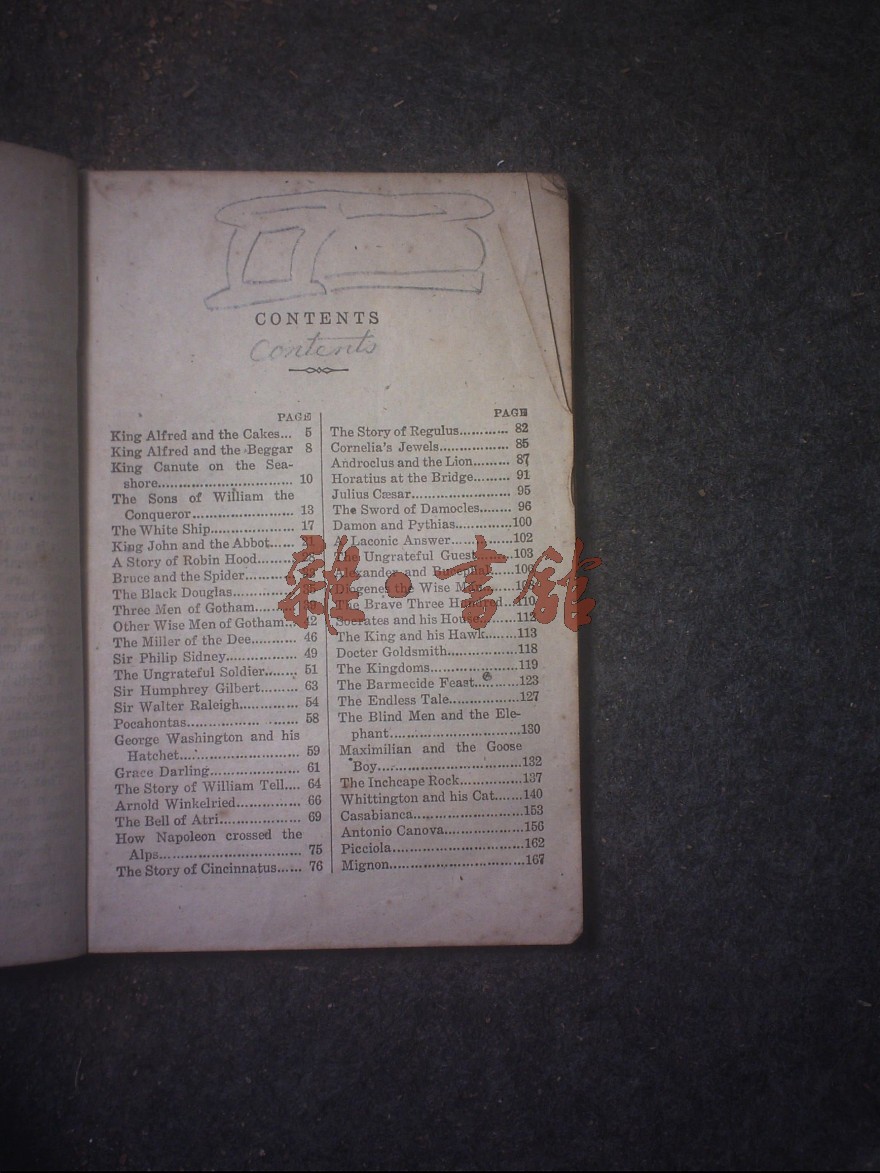 CONTENTS
Contents
PAGE
King Alfred and the Cakes... 5
King Alfred and the Beggar 8
King Canute on the Sea-
shore................................ 10
The Sons of William the
Conqueror........................ 13
The White Ship.................... 17
King John and the Abbot...... 21
A Story of Robin Hood.........
Bruce and the Spider............
The Black Douglas...............
Three Men of Gotham.......... 39
Other Wise Men of Gotham.. 42
The Miller of the Dee........... 46
Sir Philip Sidney................. 49
The Ungrateful Soldier........ 51
Sir Humphrey Gilbert......... 63
Sir Walter Raleigh.............. 54
Pocahontas......................... 58
George Washington and his
Hatchet............................ 59
Grace Darling..................... 61
The Story of William Tell.... 64
Arnold Winkelried............... 66
The Bell of Atri................... 69
How Napoleon crossed the
Alps................................. 75
The Story of Cincinnatus...... 76
PAGE
The Story of Regulus............ 82
Cornelia's Jewels.................. 85
Androclus and the Lion......... 87
Horatius at the Bridge......... 91
Julius Cæsar........................ 95
The Sword of Damocles........ 96
Damon and Pythias............100
A Laconic Answer...............102
The Ungrateful Guest.........103
Alexander and Bucephalus
Diogenes the Wise Man
The Brave Three Hundred..110
Socrates and his House........112
The King and his Hawk......113
Docter Goldsmith................118
The Kingdoms....................119
The Barmecide Feast...........123
The Endless Tale................127
The Blind Men and the Ele-
phant...............................130
Maximilian and the Goose
Boy..................................132
The Inchcape Rock..............137
Whittington and his Cat......140
Casabianca.........................153
Antonio Canova..................156
Picciola..............................162
Mignon..............................167
雜·書館